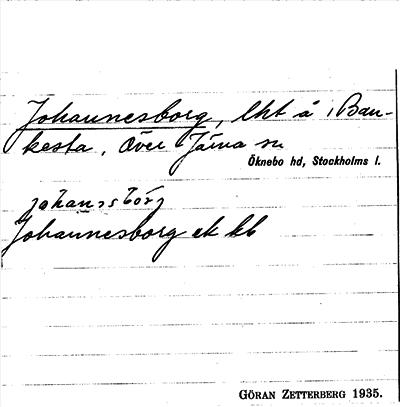 Johannesborg, lht å Ban-
kesta, Över Järna sn
Öknebo hd, Stockholms l.
johanəsbörj
Johannesborg ek kb
GÖRAN ZETTERBERG 1935.